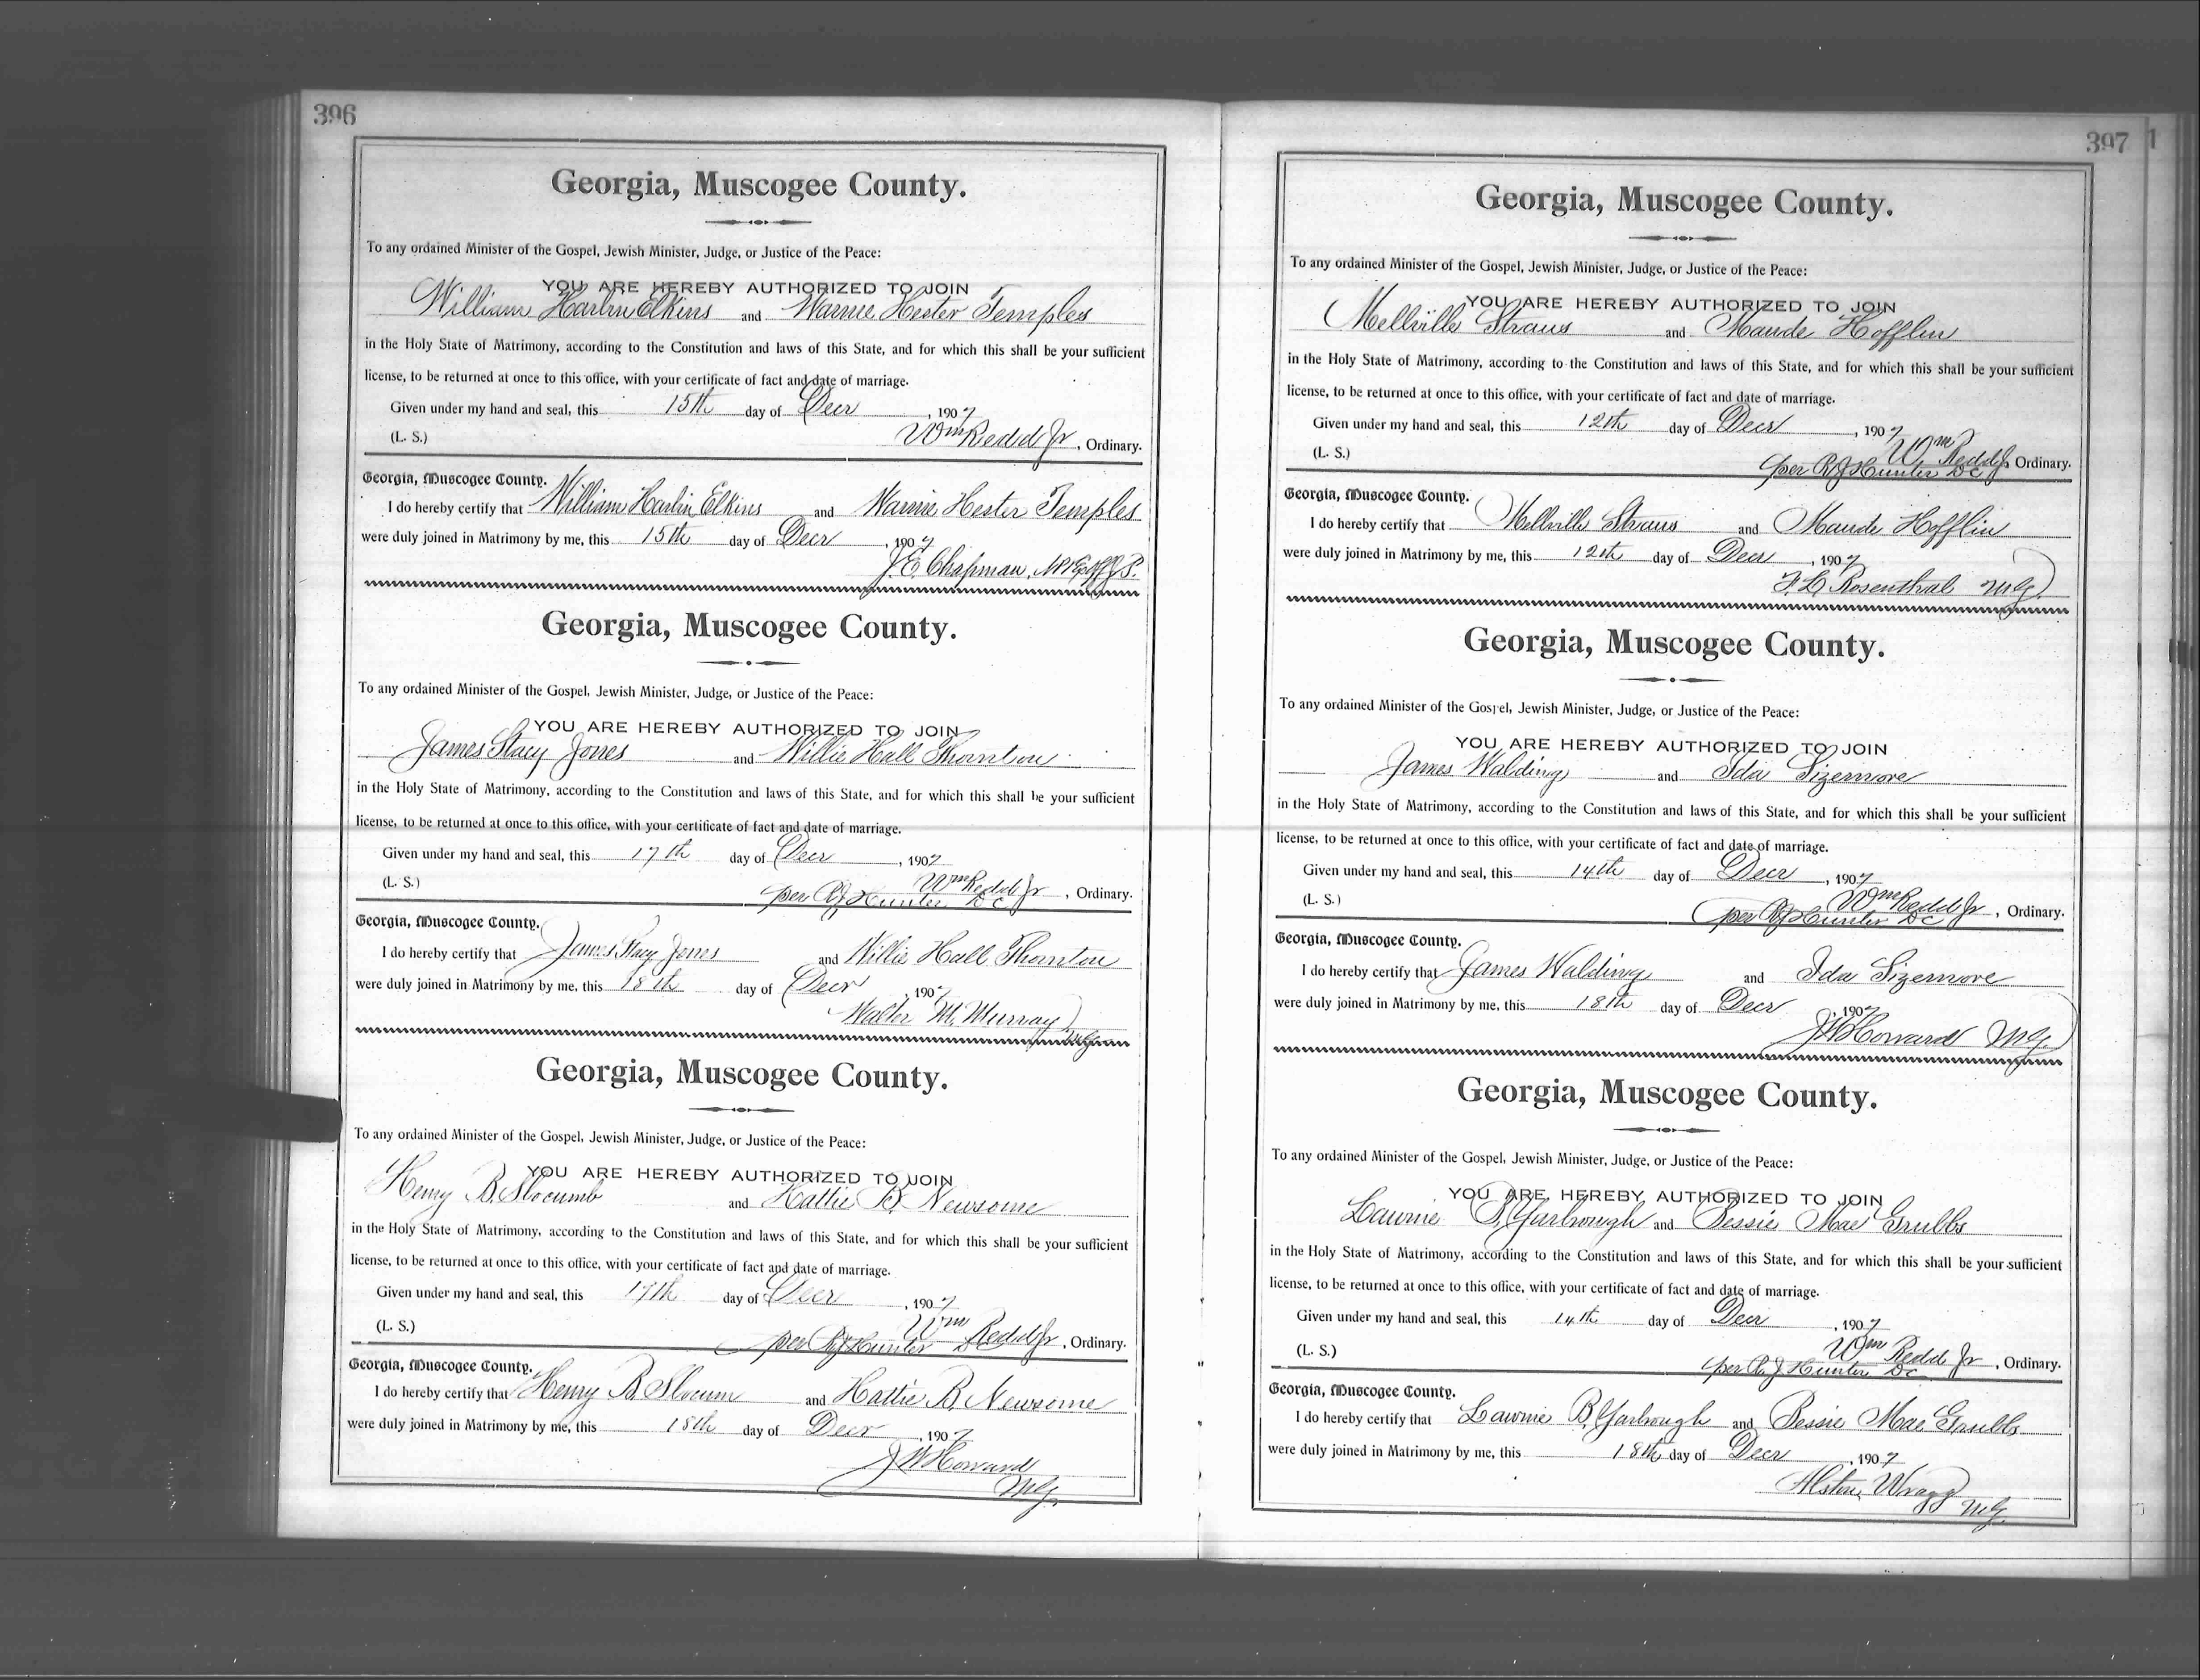 396
Georgia, Muscogee County.
To any ordained Minister of the Gospel, Jewish Minister, Judge, or Justice of the Peace:
YOU ARE HEREBY AUTHORIZED TO JOIN
William Harlin Elkins and Warnie Hester Temples
in the Holy State of Matrimony, according to the Constitution and laws of this State, and for which this shall be your sufficient
license, to be returned at once to this office, with your certificate of fact and date of marriage.
Given under my hand and seal, this 15th day of Decr, 1907
(L. S.) Wm Redd Jr, Ordinary.
Georgia, Muscogee County.
I do hereby certify that William Harlin Elkins and Warnie Hester Temples
were duly joined in Matrimony by me, this 15th day of Decr, 1907
J. E. Chapman,
Georgia, Muscogee County.
To any ordained Minister of the Gospel, Jewish Minister, Judge, or Justice of the Peace:
YOU ARE HEREBY AUTHORIZED TO JOIN
James Stacy Jones and Willie Hall Thornton
in the Holy State of Matrimony, according to the Constitution and laws of this State, and for which this shall be your sufficient
license, to be returned at once to this office, with your certificate of fact and date of marriage.
Given under my hand and seal, this 17th day of Decr, 1907
(L. S.) Wm Redd Jr, Ordinary.
per R J Hunter DC
Georgia, Muscogee County.
I do hereby certify that James Stacy Jones and Willie Hall Thornton
were duly joined in Matrimony by me, this 18th day of Decr, 1907
Walter M. Murray
MG
Georgia, Muscogee County.
To any ordained Minister of the Gospel, Jewish Minister, Judge, or Justice of the Peace:
YOU ARE HEREBY AUTHORIZED TO JOIN
Henry B. Slocumb and Hattie B. Newsome
in the Holy State of Matrimony, according to the Constitution and laws of this State, and for which this shall be your sufficient
license, to be returned at once to this office, with your certificate of fact and date of marriage.
Given under my hand and seal, this 17th day of Decr, 1907
(L. S.) Wm Redd Jr, Ordinary.
per R J Hunter DC
Georgia, Muscogee County.
I do hereby certify that Henry B. Slocum and Hattie B. Newsome
were duly joined in Matrimony by me, this 18th day of Decr, 1907
J W Howard
MG
397
Georgia, Muscogee County.
To any ordained Minister of the Gospel, Jewish Minister, Judge, or Justice of the Peace:
YOU ARE HEREBY AUTHORIZED TO JOIN
Mellville Straus and Maude Hofflin
in the Holy State of Matrimony, according to the Constitution and laws of this State, and for which this shall be your sufficient
license, to be returned at once to this office, with your certificate of fact and date of marriage.
Given under my hand and seal, this 12th day of Decr, 1907
(L. S.) Wm Redd Jr Ordinary.
per R J Hunter DC
Georgia, Muscogee County.
I do hereby certify that Mellville Straus and Maude Hofflin
were duly joined in Matrimony by me, this 12th day of Decr, 1907
F. L. Rosenthal MG
Georgia, Muscogee County.
To any ordained Minister of the Gospel, Jewish Minister, Judge, or Justice of the Peace:
YOU ARE HEREBY AUTHORIZED TO JOIN
James Walding and Ida Sizemore
in the Holy State of Matrimony, according to the Constitution and laws of this State, and for which this shall be your sufficient
license, to be returned at once to this office, with your certificate of fact and date of marriage.
Given under my hand and seal, this 14th day of Decr, 1907
(L. S.) Wm Redd Jr, Ordinary.
per R J Hunter DC
Georgia, Muscogee County.
I do hereby certify that James Walding and Ida Sizemore
were duly joined in Matrimony by me, this 18th day of Decr, 1907
J W Howard MG.
Georgia, Muscogee County.
To any ordained Minister of the Gospel, Jewish Minister, Judge, or Justice of the Peace:
YOU ARE HEREBY AUTHORIZED TO JOIN
Lawnie B. Yarbrough and Bessie Mae Grubbs
in the Holy State of Matrimony, according to the Constitution and laws of this State, and for which this shall be your sufficient
license, to be returned at once to this office, with your certificate of fact and date of marriage.
Given under my hand and seal, this 14th day of Decr, 1907
(L. S.) Wm Redd Jr, Ordinary.
per R J Hunter DC
Georgia, Muscogee County.
I do hereby certify that Lawnie B. Yarbrough and Bessie Mae Grubbs
were duly joined in Matrimony by me, this 18th day of Decr, 1907
Alston Wragg
MG.